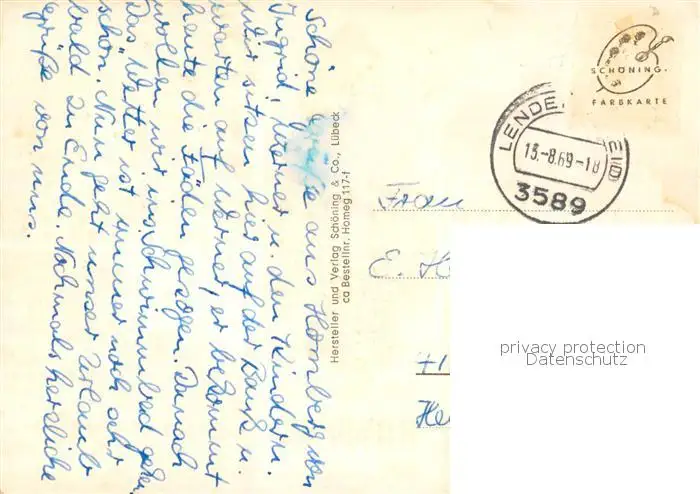 Schöne Grüße aus Homberg von
Ingrid, Werner u. den Kindern.
Wir sitzen hier auf der Bank u.
warten auf Werner, er bekommt
heute die Fäden gezogen. Danach
wollen wir ins Schwimmbad gehen
Das Wetter ist immer noch sehr
schön. Nun geht unser Urlaub
bald zu Ende. Nochmals herzliche
Grüße von uns.
Hersteller und Verlag Schöning & Co., Lübeck
ca Bestellnr. Homeg 117-f
SCHÖNING
FARBKARTE
LENDE
13.-8.69-18
3589
Frau
E.
privacy protection
Datenschutz